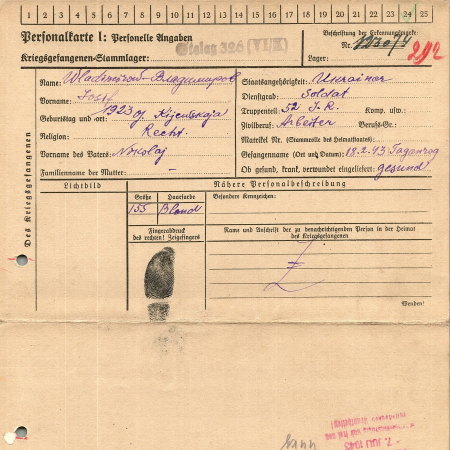 1 2 3 4 5 6 7 8 9 10 11 12 13 14 15 16 17 18 19 20 21 22 23 24 25
Personalkarte I: Personelle Angaben
Kriegsgefangenen-Stammlager: Stalag 326 (VI/K)
Beschriftung der Erkennungsmarke
Nr.
Lager: 292
Des Kriegsgefangenen
Name: Wladimirow Владимиров
Vorname: Josef
Geburtstag und -ort: 1923 og. Kijewskaja
Religion: Recht.
Vorname des Vaters: Nikolaj
Familienname der Mutter:
Staatsangehörigkeit: Ukrainer
Dienstgrad: Soldat
Truppenteil: 52 I.R. Komp. usw.:
Zivilberuf: Arbeiter Berufs-Gr.:
Matrikel Nr. (Stammrolle des Heimatstaates):
Gefangennahme (Ort und Datum): 18.2.43 Taganrog
Ob gesund, krank, verwundet eingeliefert: gesund
Lichtbild
Nähere Personalbeschreibung
Größe Haarfarbe
155 Blond
Besondere Kennzeichen:
Fingerabdruck
des rechten! Zeigefingers
Name und Anschrift der zu benachrichtigenden Person in der Heimat
des Kriegsgefangenen
Wenden!
7. JULI 1943